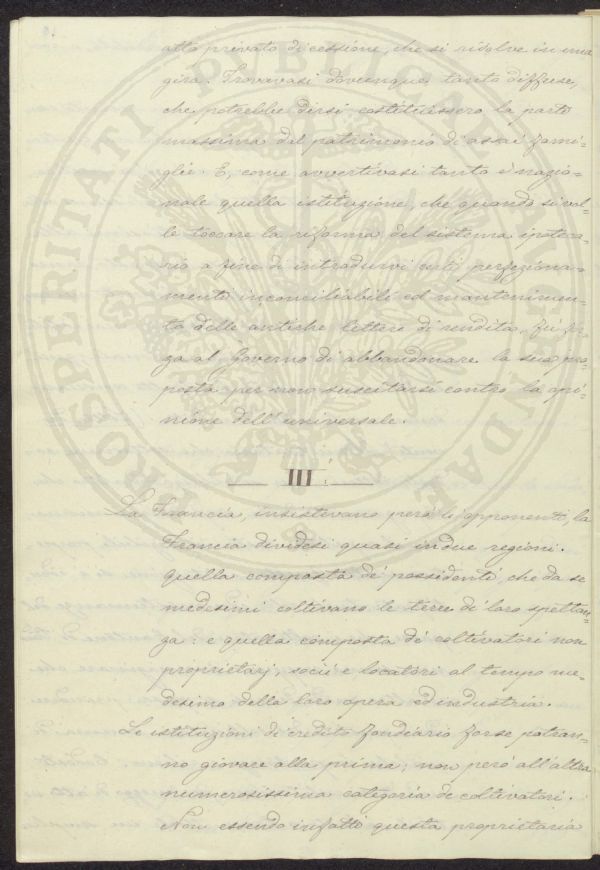 atto privato di cessione, che si risolve in una
gira. Trovavasi dovunque tanto diffuse,
che potrebbe dirsi costituissero la parte
massima del patrimonio di assai fami-
glie. E, come avvertivasi tanto è nazio-
nale quella istituzione, che quando si vol-
le toccare la riforma del sistema ipoteca-
rio a fine di introdurvi perfeziona-
menti inconciliabili col mantenimen-
to delle antiche lettere di rendita, fu for-
za al Governo di abbandonare la sua pro-
posta per non suscitarsi contro la opi-
nione dell'universale.
III.
La Francia, insistevano però li opponenti, la
Francia dividesi quasi in due regioni.
quella composta de' possidenti che da se
medesimi coltivano le terre di loro spettan-
za: e quella composta de' coltivatori non
proprietarj, socii e locatori al tempo me-
desimo della loro opera ed industria.
Le istituzioni di credito fondiario forse potran-
no giovare alla prima; non però all'altra
numerosissima categoria de coltivatori.
Non essendo infatti questa proprietaria
PROSPERITATI PUBLICAE AUGENDAE